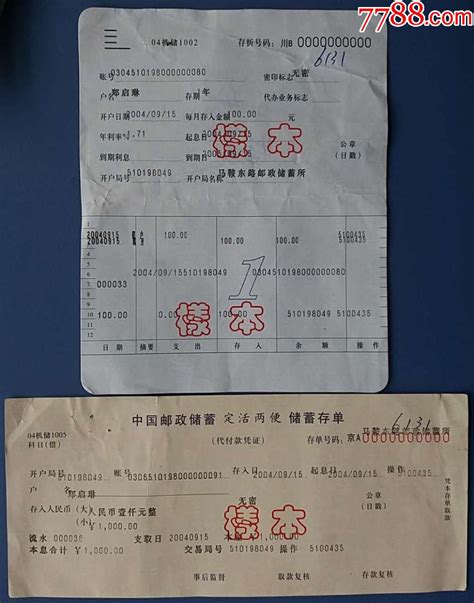 7788.com
04机储1002 存折号码: 川B 0000000000
6131
账号 0304510198000000080 密印标志 无密
户名 郑启琳 存期 1年 代办业务标志
开户日期 2004/09/15 每月存入金额 100.00 元
年利率% 1.71 起息日 2004/09/15
样本 公章
到期利息 到期日 2005/09/15 (日戳)
开户局号 510198049 开户局名称 马鞍东路邮政储蓄所
1
20040915 开户 100.00 5100435
20040915 100.00 100.00 100.00 5100435
4
5
6 2004/09/15510198049 0304510198000000080
7 000033
8
9 1
10 100.00 0.00 100.00 510198049 5100435
样本
11
12
日期 摘要 支出 存入 余额 操作
中国邮政储蓄 定活两便 储蓄存单
6131
04机储1005 马鞍东路邮政储蓄所
科目(借) (代付款凭证) 存单号码: 京A 0000000000
开户局号 510198049 账号 0306510198000000091 存入日 2004/09/15 起息日 2004/09/15 操作 5100435
户名 郑启琳 无密
存入人民币 (大) 人民币壹仟元整
(小) ¥1,000.00
样本
凭本存单取款
流水 000036 支取日 20040915 本金 1,000.00
本息合计 ¥1,000.00 交易局号 510198049 操作 5100435
事后监督 取款复核 存款复核